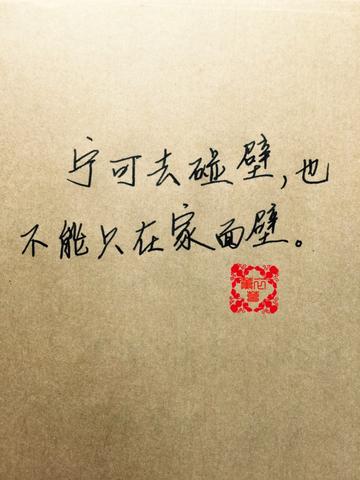 宁可去碰壁,也
不能只在家面壁。